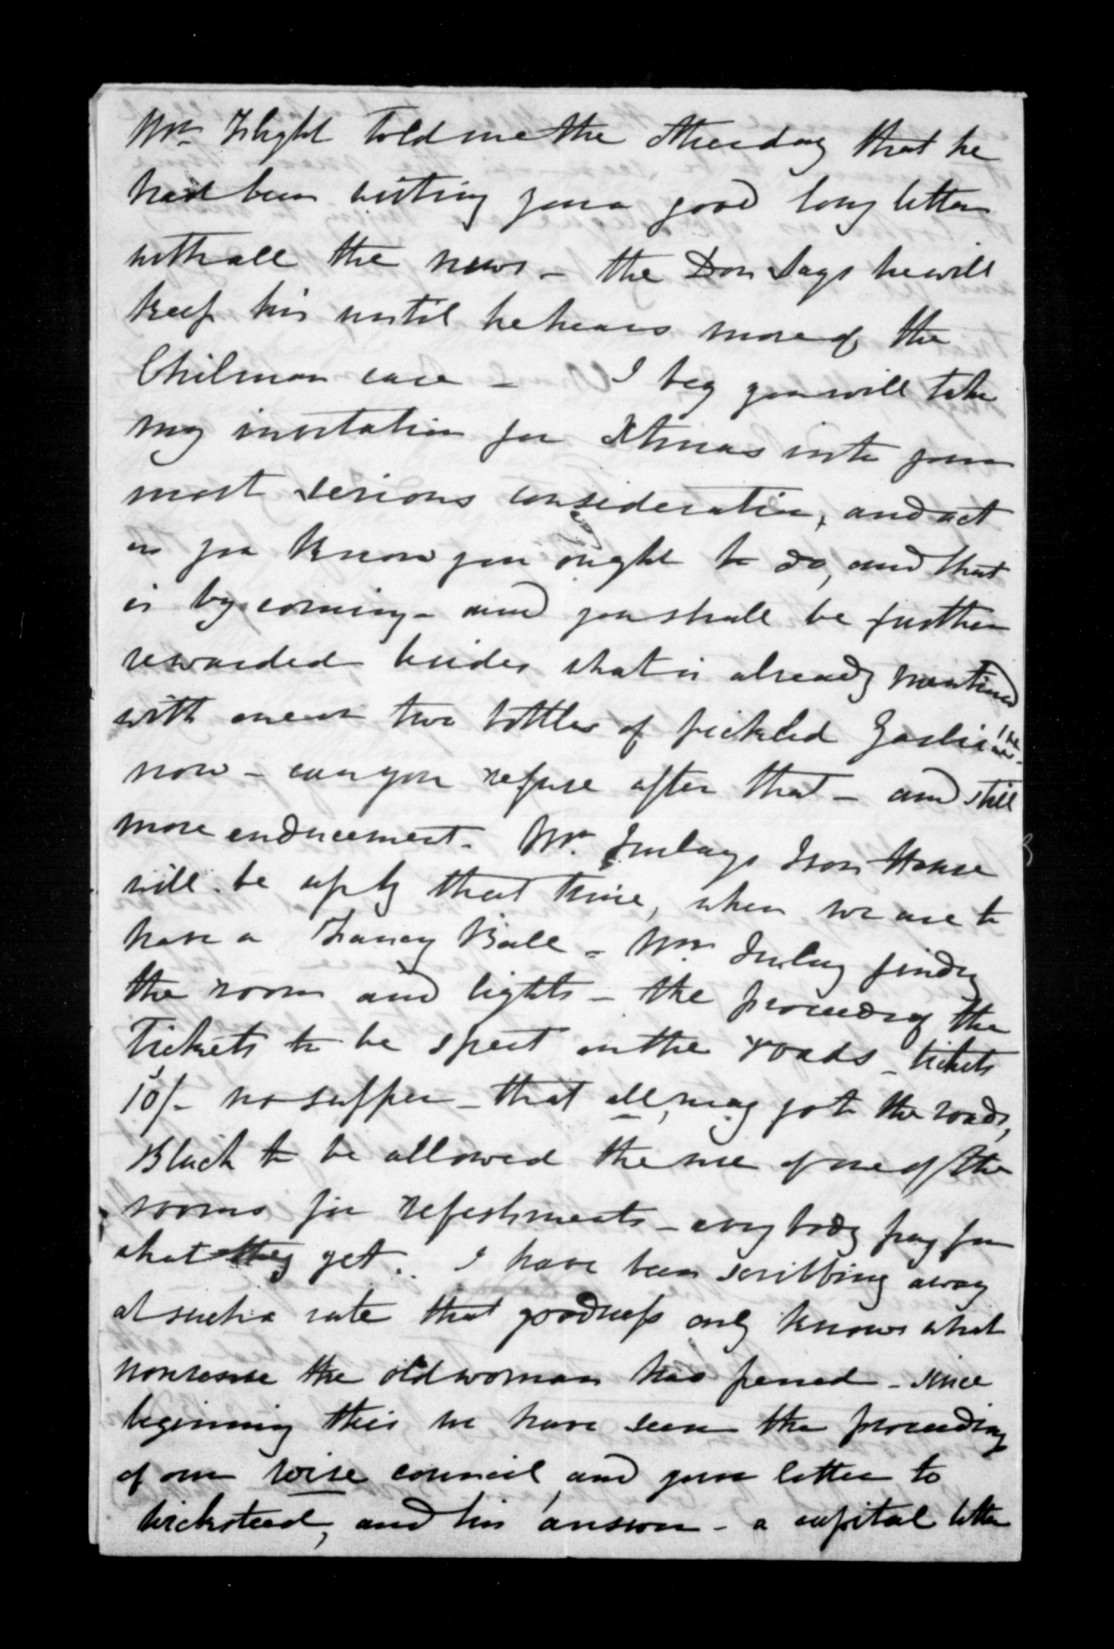 Mr. Flight told me the other day that he
had been writing you a good long letter
with all the news - the Don says he will
keep his until he hears more of the
Chilman case - I beg you will take
my invitation for Xtmas into your
most serious consideration, and act
as you know you ought to do, and that
is by coming - and you shall be further
rewarded besides what is already mentioned
with one or two bottles of pickled Garlic
now - can you refuse after that - and still
more enducement. Mr. Imlays Iron House
will be up by that time, when we are to
have a Fancy Ball - Mr Imlay finding
the room and lights - the proceeds of the
Tickets to be spent on the roads - tickets
10/- no supper - that all, may go to the roads,
Black to be allowed the use of one of the
rooms for refeshments - evry body pay for
what they get. I have been scribbing away
at such a rate that goodness only knows what
nonsense the old woman has penned - since
beginning this we have seen the proceeding
of our wise council, and your letter to
Wicksteed, and his answer - a capital letter